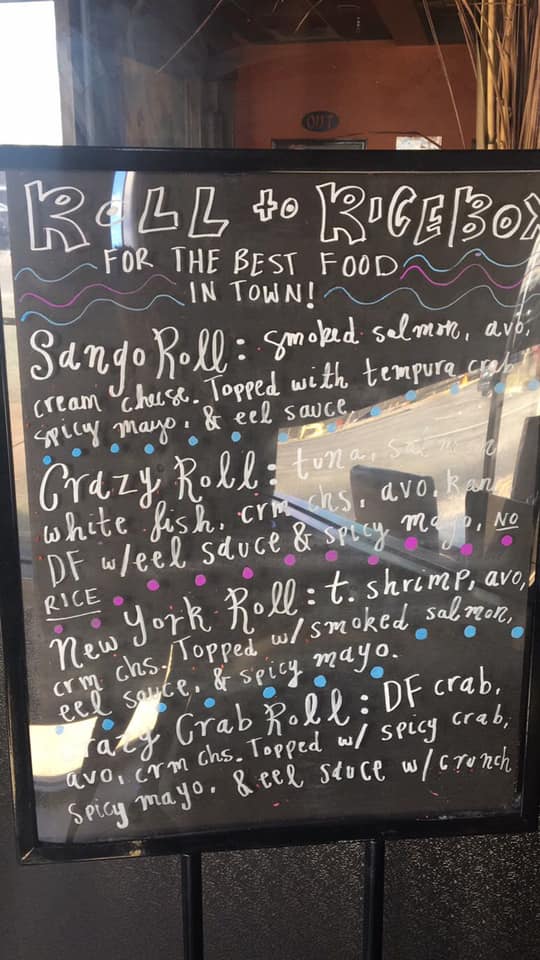 OUT
ROLL to RICEBOX
FOR THE BEST FOOD
IN TOWN!
Sango Roll: smoked salmon, avo,
cream cheese. Topped with tempura crab
spicy mayo, & eel sauce
Crazy Roll: tuna, salmon
white fish, crm chs, avo, kani
DF w/eel sauce & spicy mayo, NO
RICE
New York Roll: t. shrimp, avo,
crm chs. Topped w/smoked salmon,
eel sauce, & spicy mayo.
Crazy Crab Roll: DF crab,
avo, crm chs. Topped w/ spicy crab,
spicy mayo, & eel sauce w/crunch